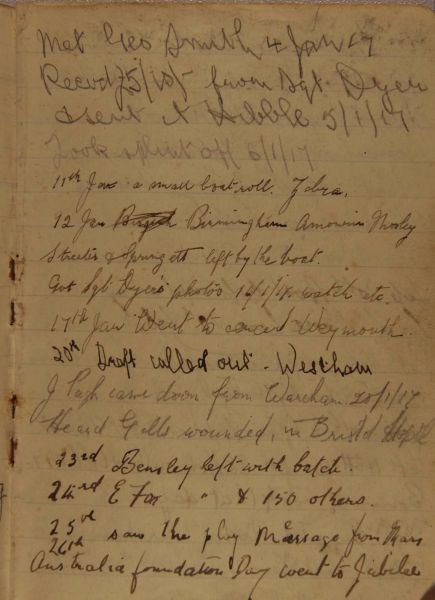 Met Geo Smith 4 Jan 17
Recvd 75/10/- from Sgt. Dyer
& sent A Hibble 5/1/17
Took splint off 6/1/17
11th Jan a small boat roll.
12 Jan Birmingham Mosley
Streeter & Spungett left by the boat.
Got Sgt Dyer's photos watch etc.
17th Jan Went to concert Weymouth.
20th Draft called out - Westham
J Pugh came down from Wareham. 20/1/17
Heard Gells wounded, in Bristol
23rd Bensley left with batch.
24rd E Fox " & 150 others.
25th
26th saw the play Message from Mars
Australia foundation Day went to Jubilee